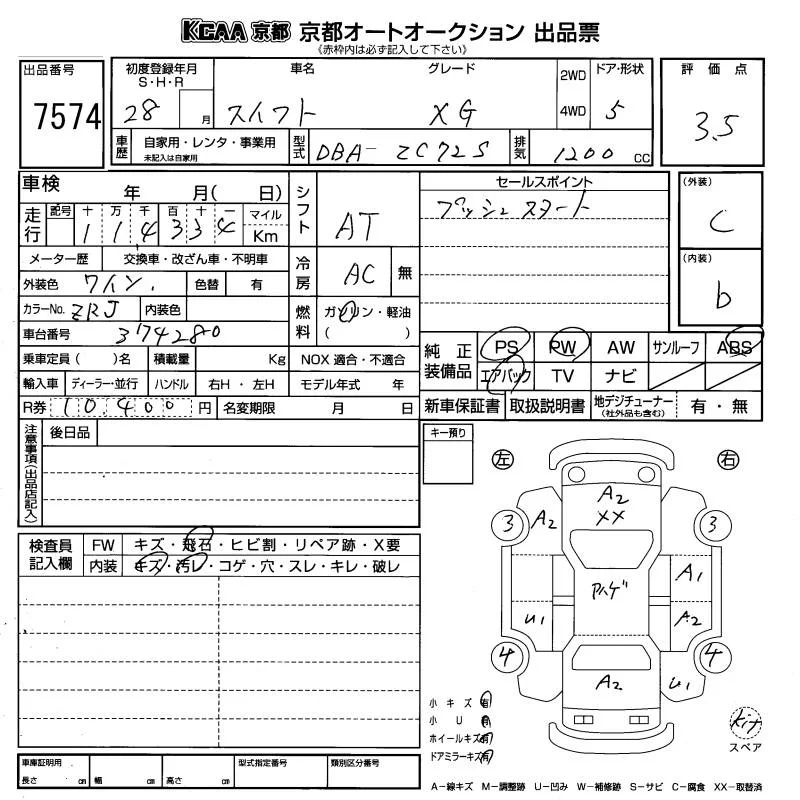 KCAA 京都 京都オートオークション 出品票
《赤枠内は必ず記入して下さい》
出品番号
7574
初度登録年月
S・H・R
28 月
車名
スイフト
グレード
XG
2WD
4WD
ドア・形状
5
評価点
3.5
車歴
自家用・レンタ・事業用
未記入は自家用
型式
DBA-ZC72S
排気
1200 CC
車検 年 月( 日)
走行
記号 十 万 千 百 十 一
1 1 4 3 3 4
マイル
Km
メーター歴 交換車・改ざん車・不明車
外装色 ワイン. 色替 有
カラーNo. ZRJ 内装色
車台番号 374280
乗車定員( )名 積載量 Kg
輸入車 ディーラー・並行 ハンドル 右H・左H
R券 10,400 円 名変期限 月 日
シフト
AT
冷房
AC 無
燃料
ガソリン・軽油
( )
NOX 適合・不適合
モデル年式 年
セールスポイント
プッシュスタート
(外装)
C
(内装)
b
純正装備品
PS PW AW サンルーフ ABS
エアバック TV ナビ
新車保証書 取扱説明書 地デジチューナー
(社外品も含む)
有・無
注意事項(出品店記入)
後日品
キー預り
検査員
記入欄
FW キズ・飛石・ヒビ割・リペア跡・X要
内装 キズ・汚レ・コゲ・穴・スレ・キレ・破レ
左 右
A2
XX
3 A2 3
A1
ハゲ
U1 A2
4 4
A2 U1
小キズ 有
小U 有
ホイールキズ 有
ドアミラーキズ 有
kit
スペア
車庫証明用
長さ cm 幅 cm 高さ cm
型式指定番号
類別区分番号
A-線キズ M-調整跡 U-凹み W-補修跡 S-サビ C-腐食 XX-取替済